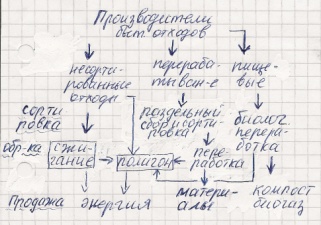 Производители
быт. отходов
несорти-
рованные
отходы
перераба-
тываем-е
пище-
вые
сорти
ровка
раздельный
сбор и сорти-
ровка
биолог.
перера-
ботка
обр-ка
сжи-
гание
полигон
пере-
работка
Продажа
энергия
матери-
алы
компост
биогаз